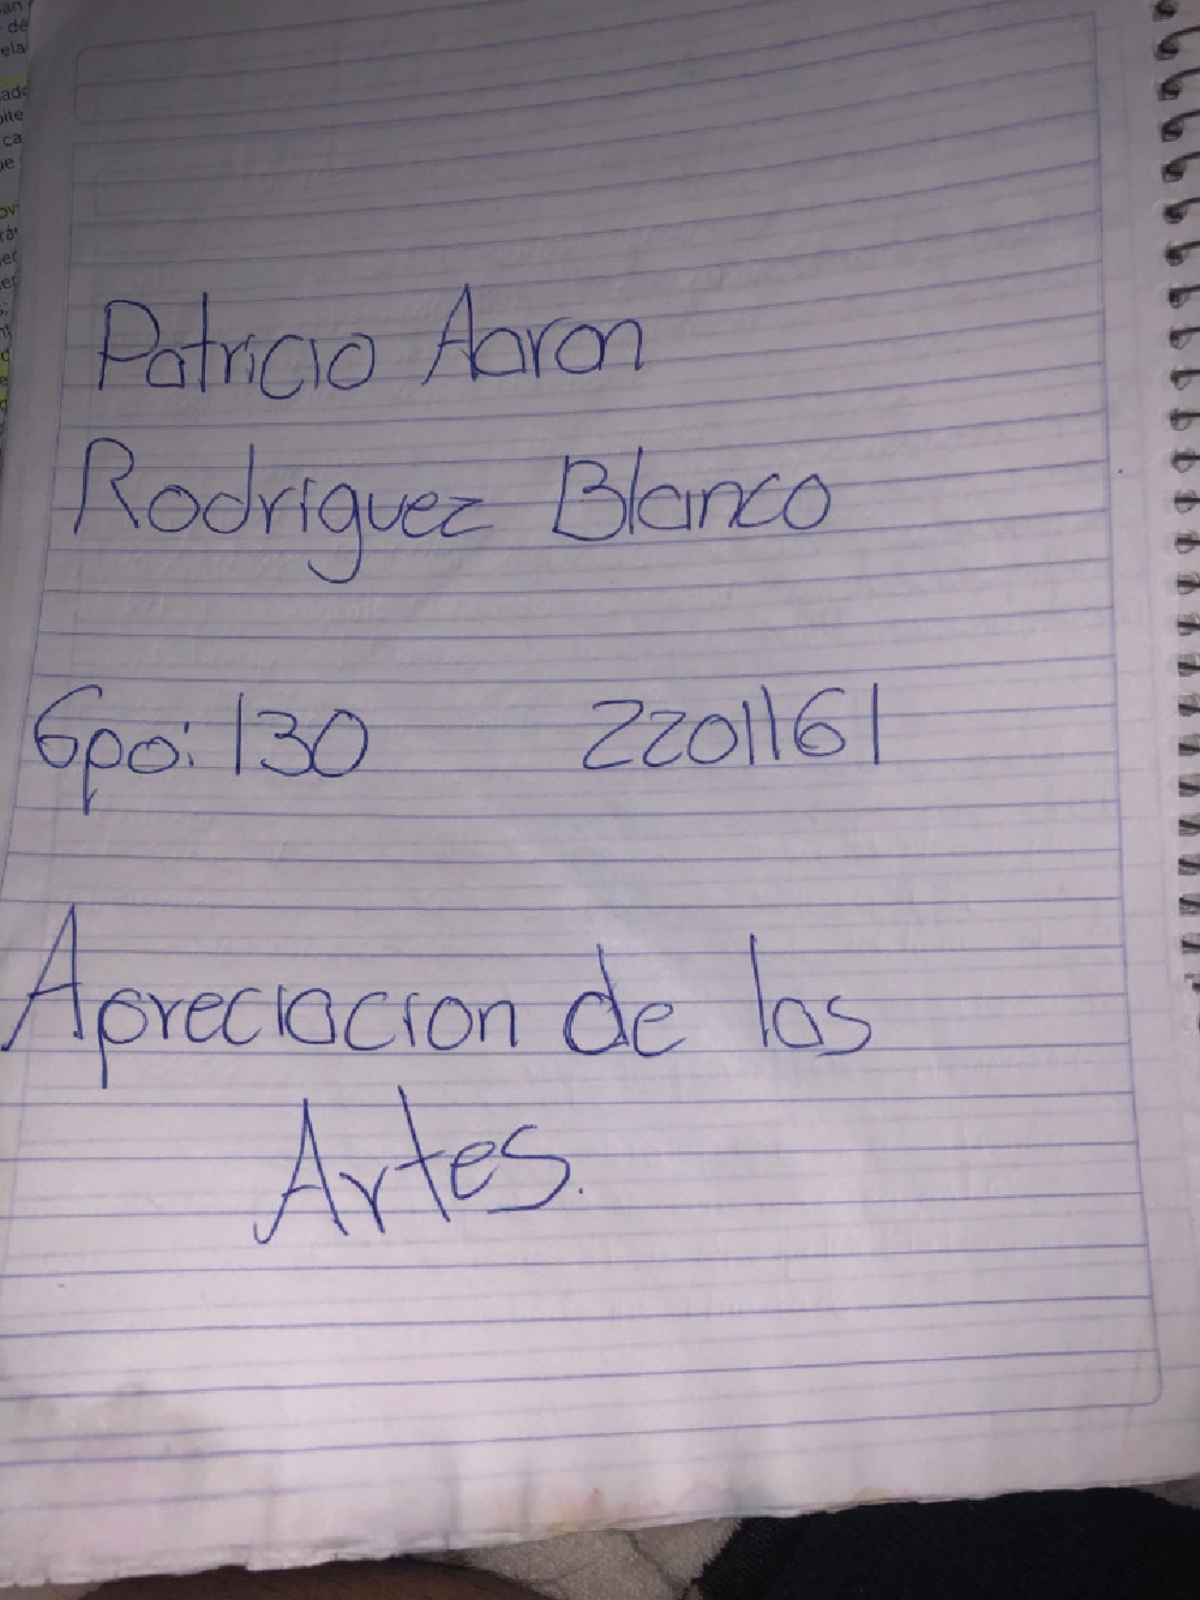 Patricio Aaron
Rodriguez Blanco
Gpo: 130 2201161
Apreciacion de las
Artes.